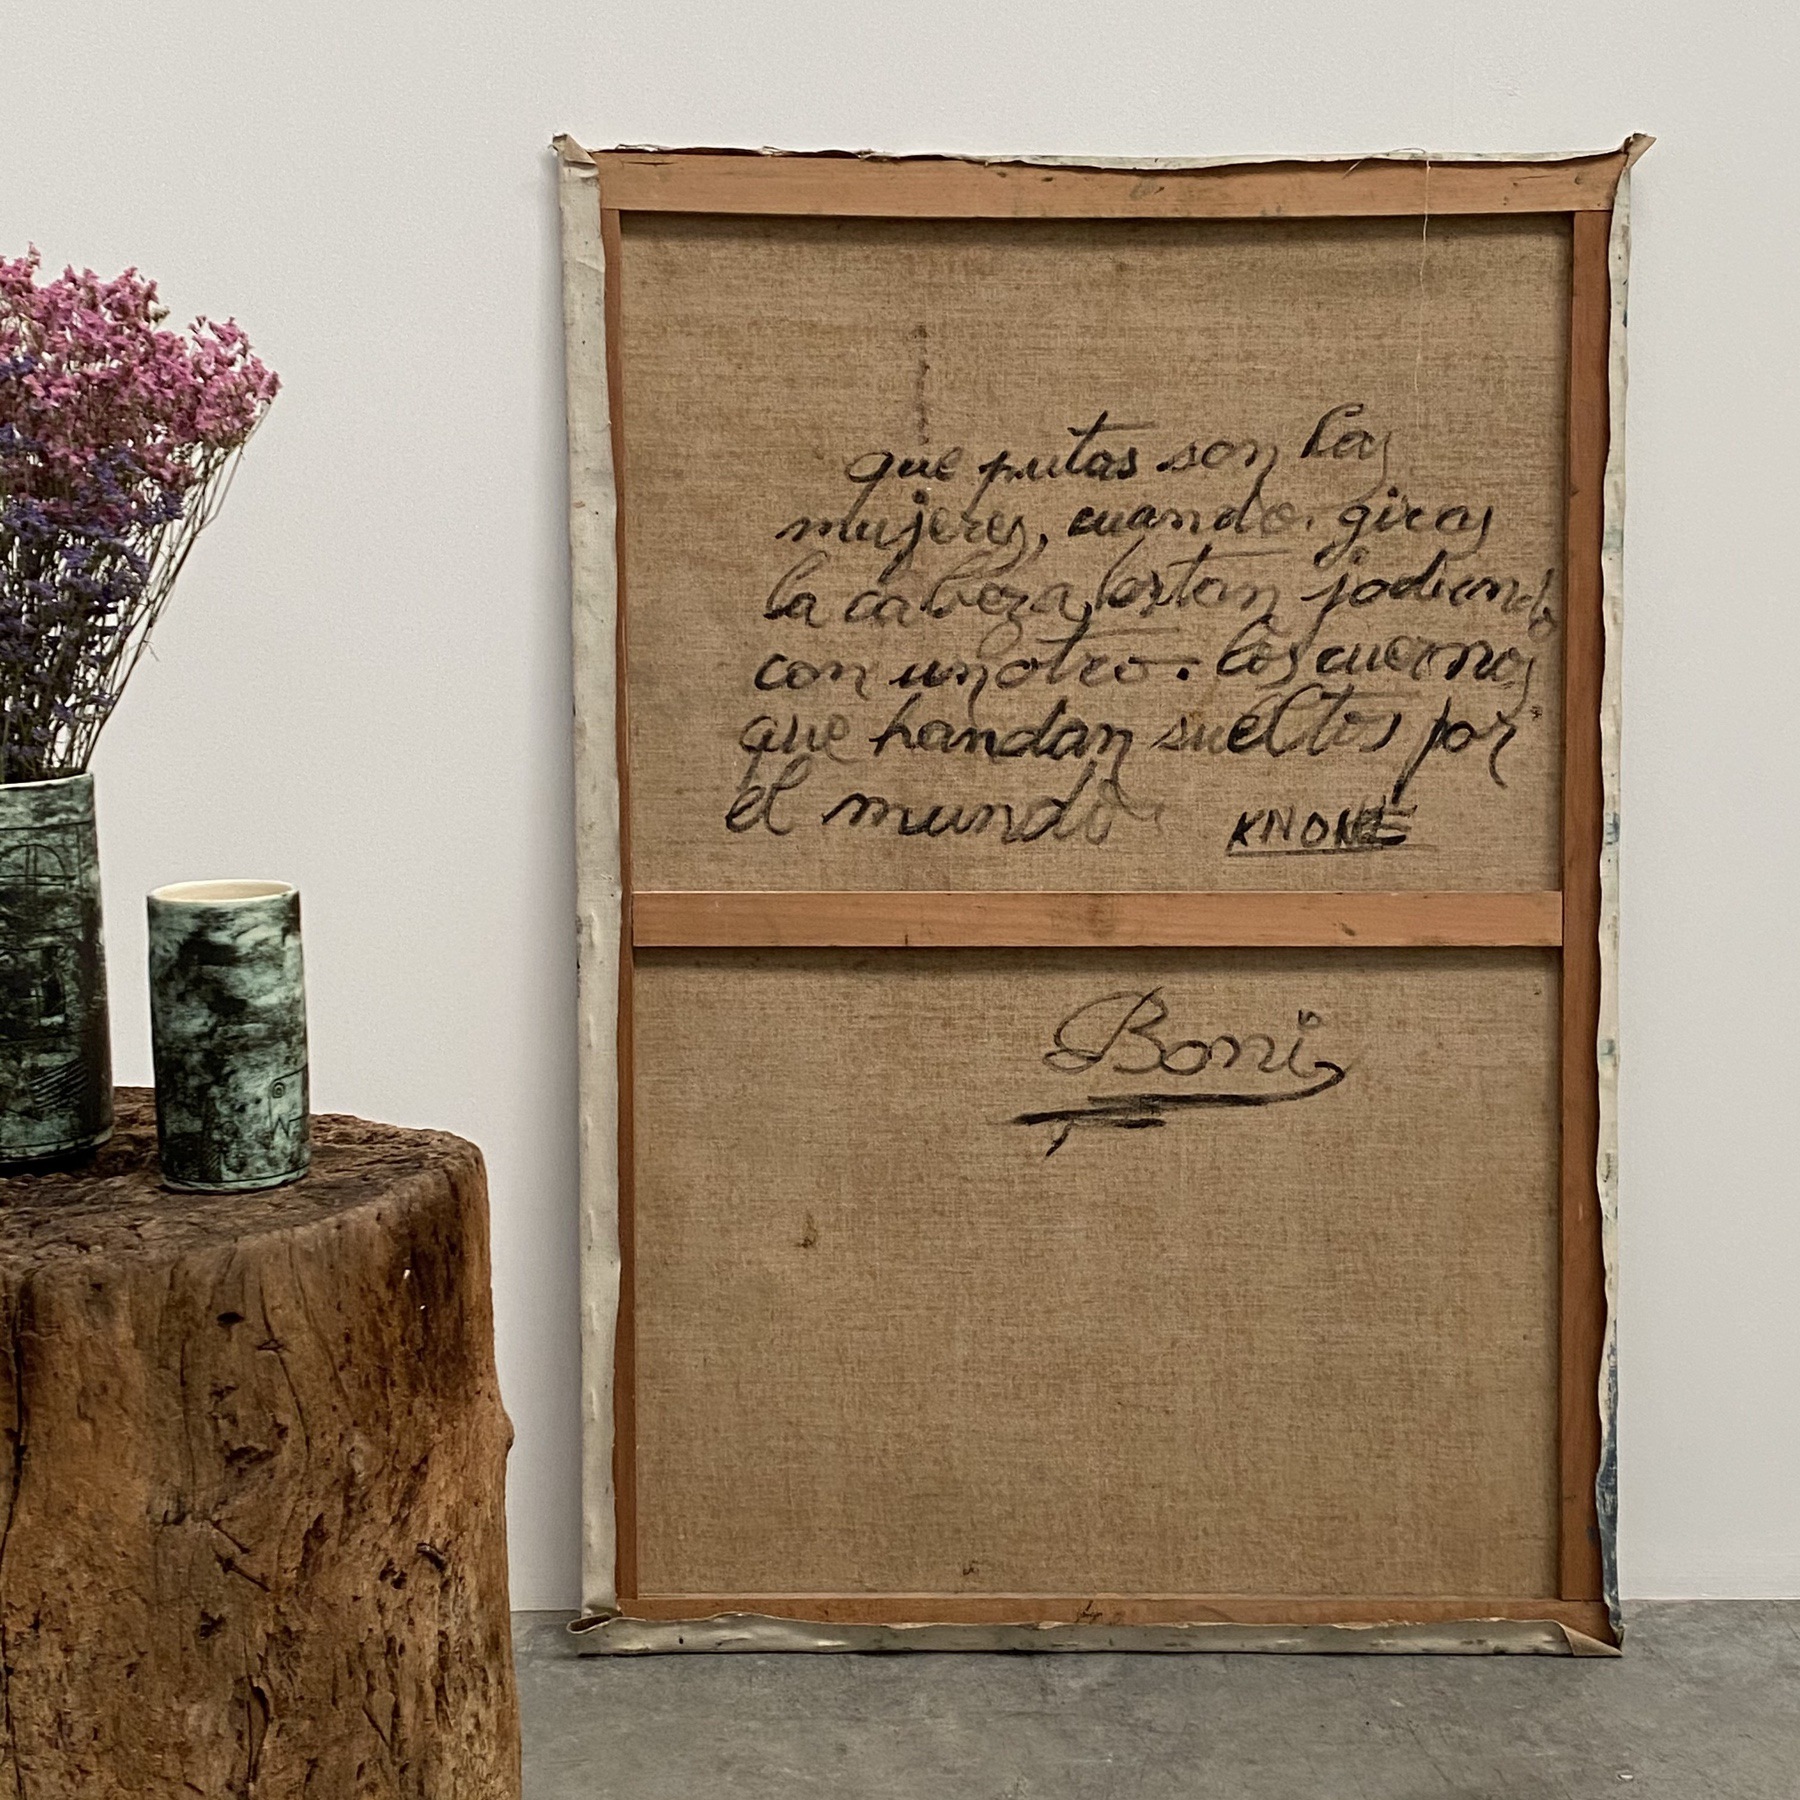 que putas son las
mujeres, cuando giras
la cabeza, estan jodiendo
con un otro. los cuernos
que handan sueltos por
el mundo
Boni